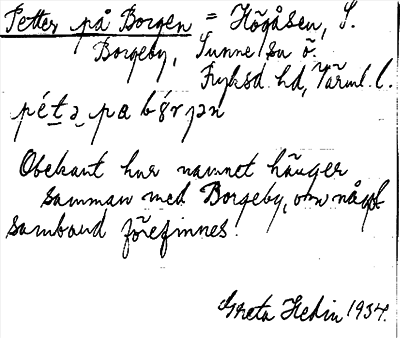 Petter på Borgen = Högåsen, S.
Borgeby, Sunne sn ö.
Fryksd. hd, Värml. l.
pét̠ə̠ pa bór jən
Obekant hur namnet hänger
samman med Borgeby, om något
samband förefinnes.
Greta Hedin 1934.